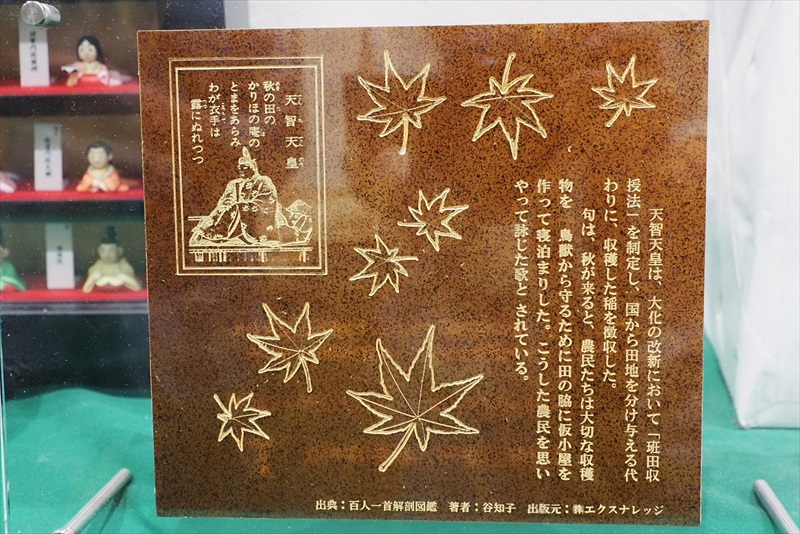 天智天皇
秋の田の
かりほの庵の
とまをあらみ
わが衣手は
露にぬれつつ
天智天皇は、大化の改新において「班田収
授法」を制定し、国から田地を分け与える代
わりに、収穫した稲を徴収した。
句は、秋が来ると、農民たちは大切な収穫
物を、鳥獣から守るために田の脇に仮小屋を
作って寝泊まりした。こうした農民を思い
やって詠じた歌と されている。
出典：百人一首解剖図鑑 著者：谷知子 出版元：㈱エクスナレッジ